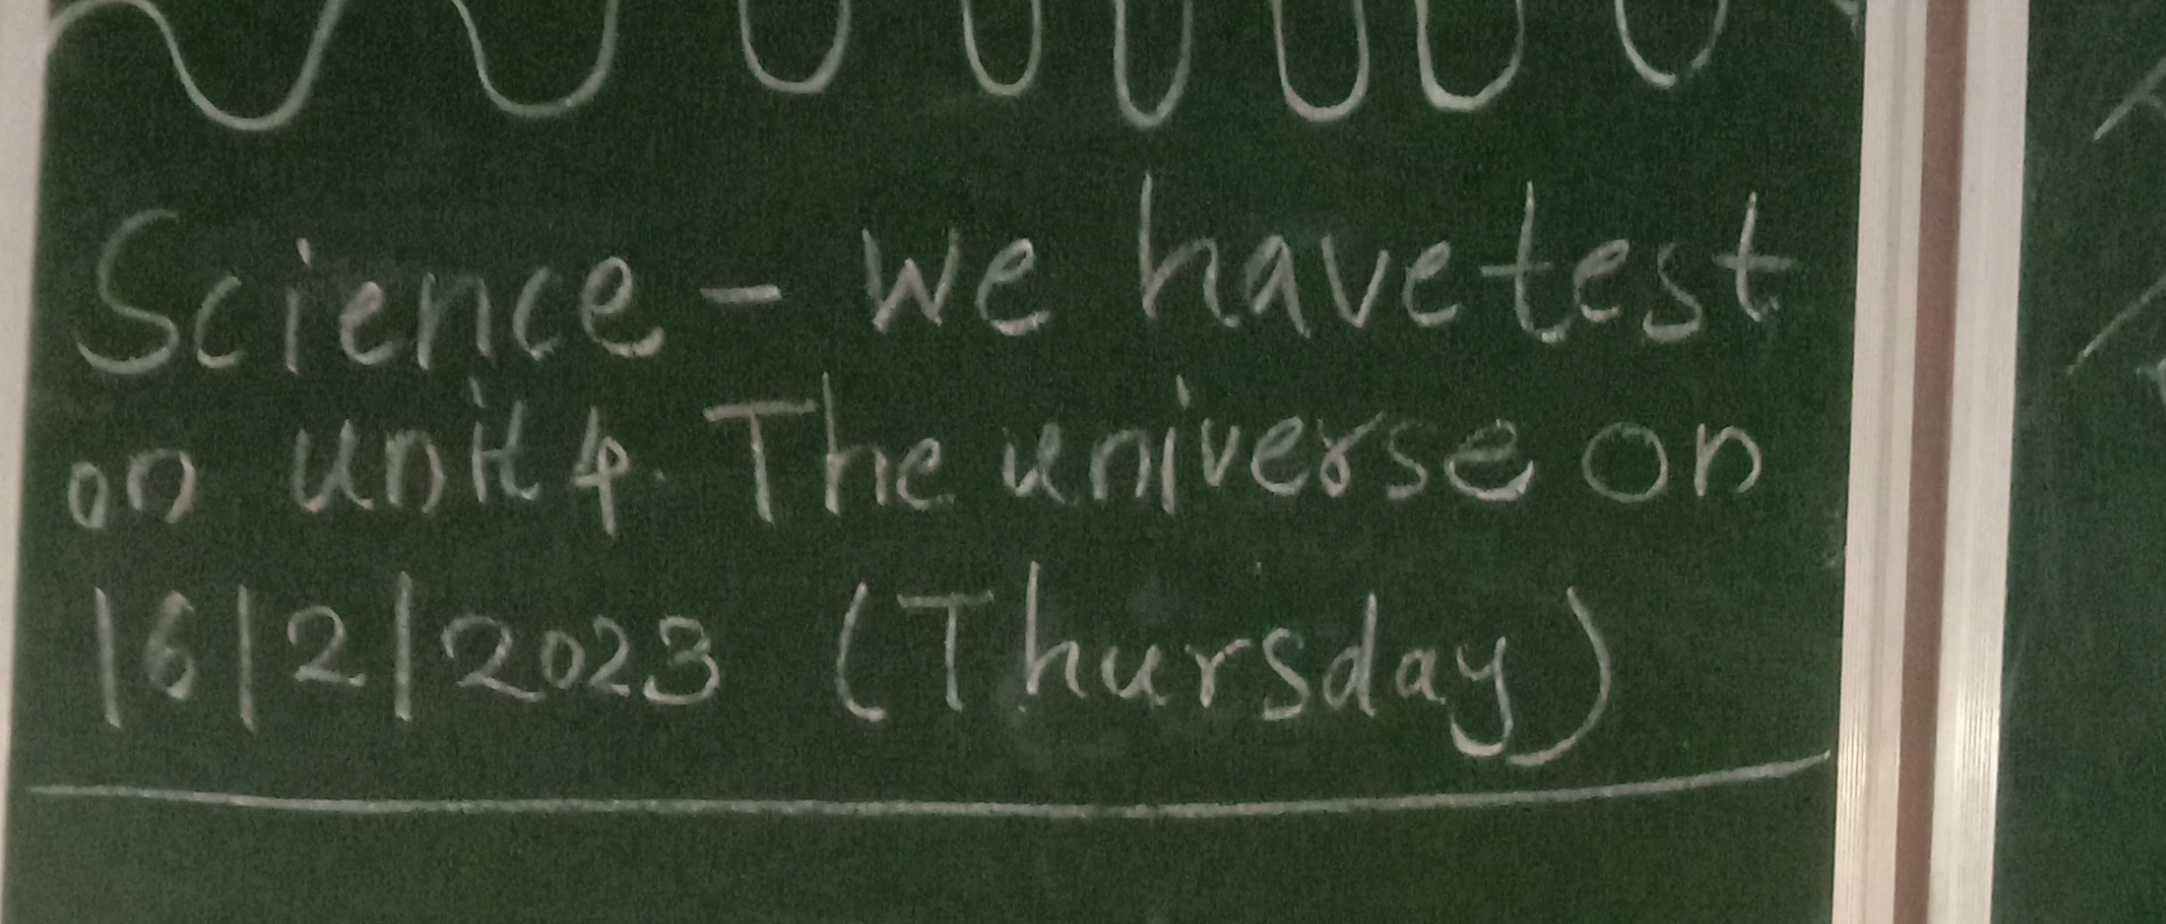 Science - We have test
on unit 4. The universe on
16/2/2023 (Thursday)